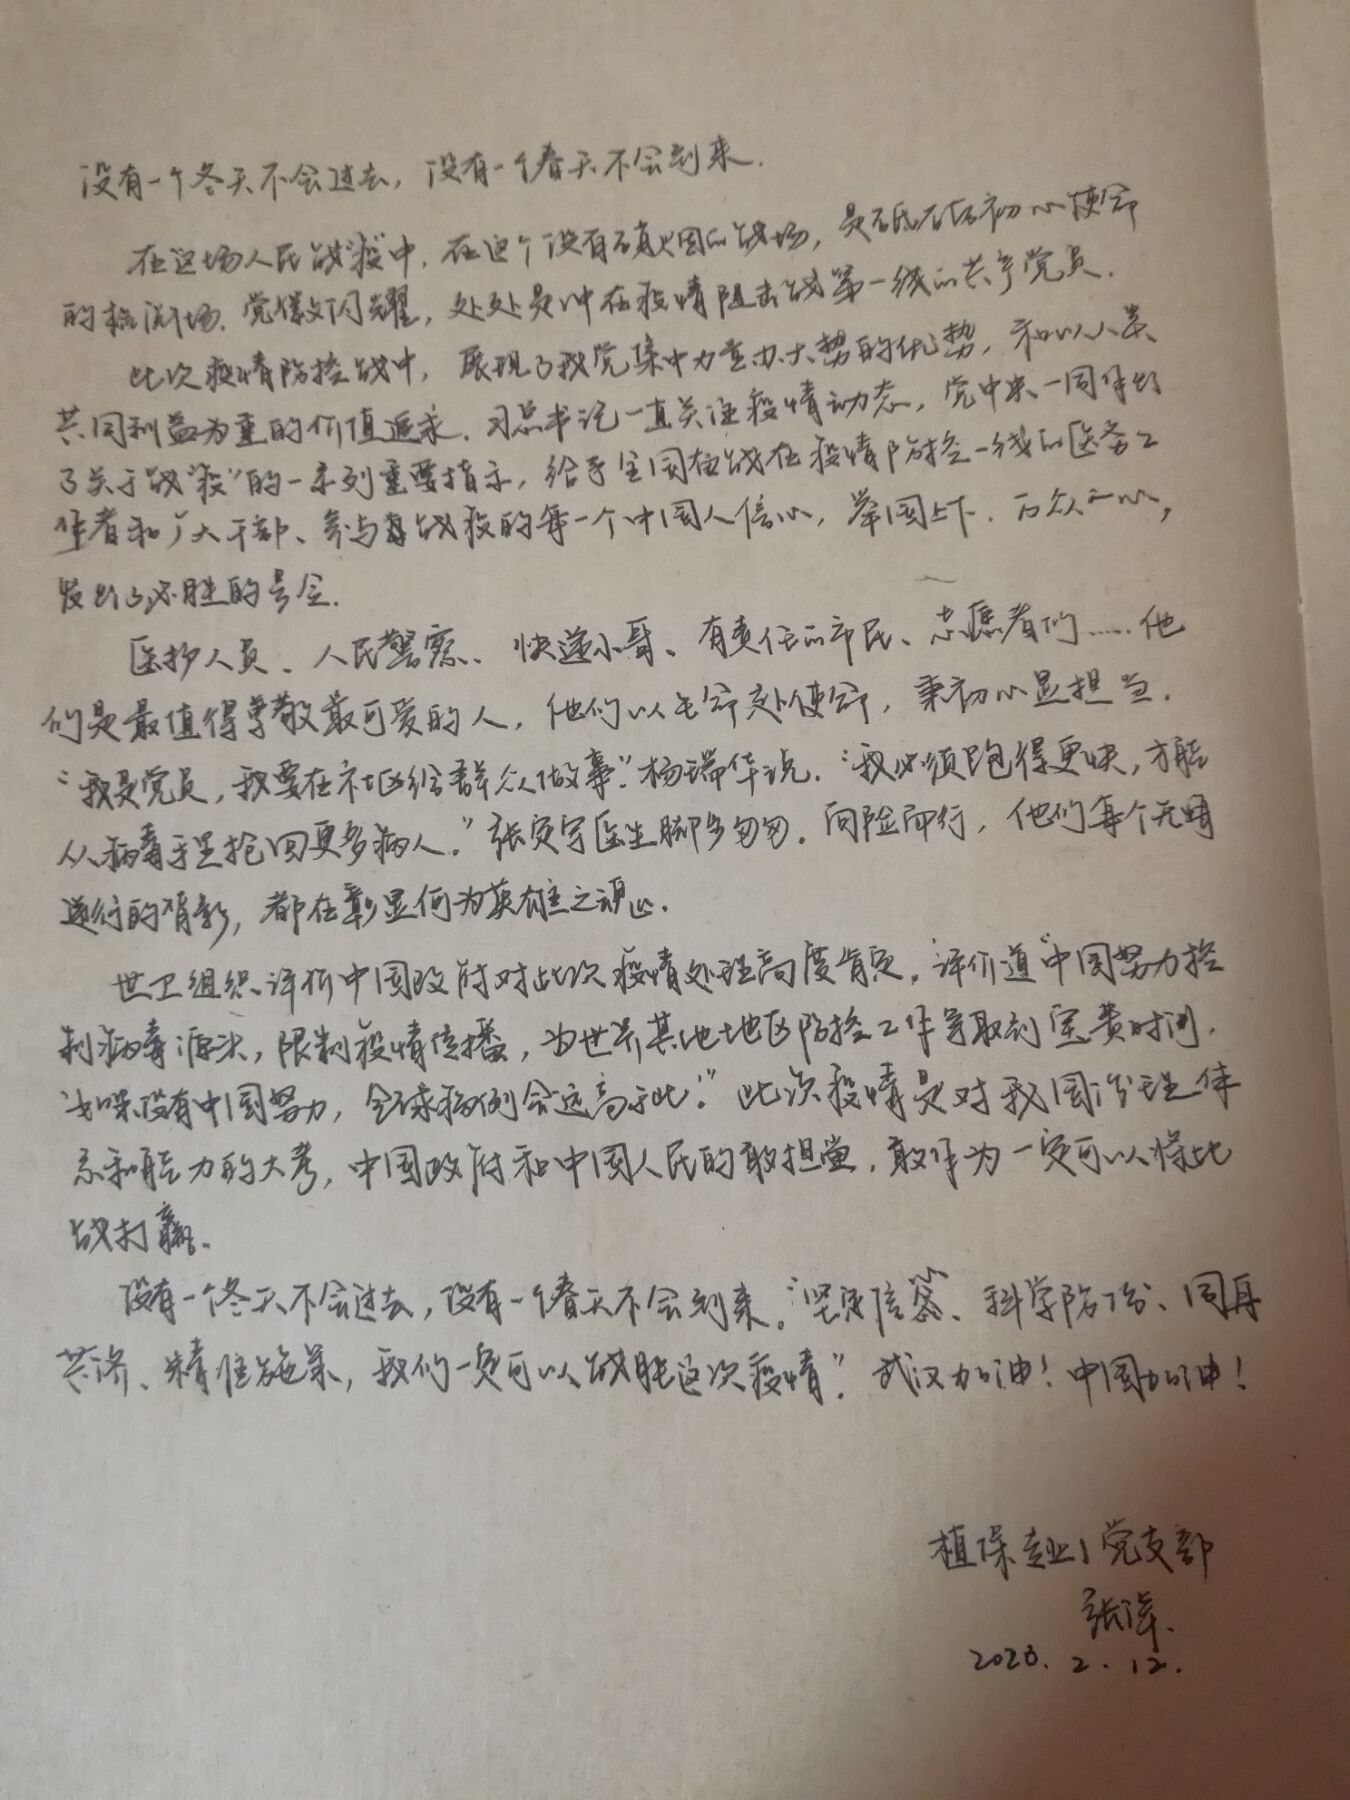 没有一个冬天不会过去，没有一个春天不会到来.
在这场人民战"疫"中，在这个没有硝烟的战场，是砥砺初心使命
的检测场.党徽闪耀，处处是冲在疫情阻击战第一线的共产党员.
此次疫情防控战中，展现了我党集中力量办大势的优势，和以人类
共同利益为重的价值追求.习总书记一直关注疫情动态，党中央一同作出
了关于战"疫"的一系列重要指示，给予全国在战在疫情防控一线的医务工
作者和广大干部、参与战疫的每一个中国人信心，举国上下.万众一心，
发出了必胜的号令.
医护人员、人民警察、快递小哥、有责任的市民、志愿者们……他
们是最值得尊敬最可爱的人，他们以生命赴使命，秉初心显担当.
"我是党员，我要在社区给群众做事."杨瑞华说."我必须跑得更快，才能
从病毒手里抢回更多病人."张定宇医生脚步匆匆.向险而行，他们每个无畏
逆行的背影，都在彰显何为英雄之魂.
世卫组织评价中国政府对此次疫情处理高度肯定，评价道"中国努力控
制病毒源头，限制疫情传播，为世界其他地区防控工作争取到宝贵时间，
如果没有中国努力，全球病例会远高于此."此次疫情是对我国治理体
系和能力的大考，中国政府和中国人民的敢担当，敢作为一定可以将此
战打赢.
没有一个冬天不会过去，没有一个春天不会到来，"坚定信念、科学防治、同舟
共济、精准施策，我们一定可以战胜这次疫情".武汉加油！中国加油！
植保专业1党支部
张萍.
2020.2.12.